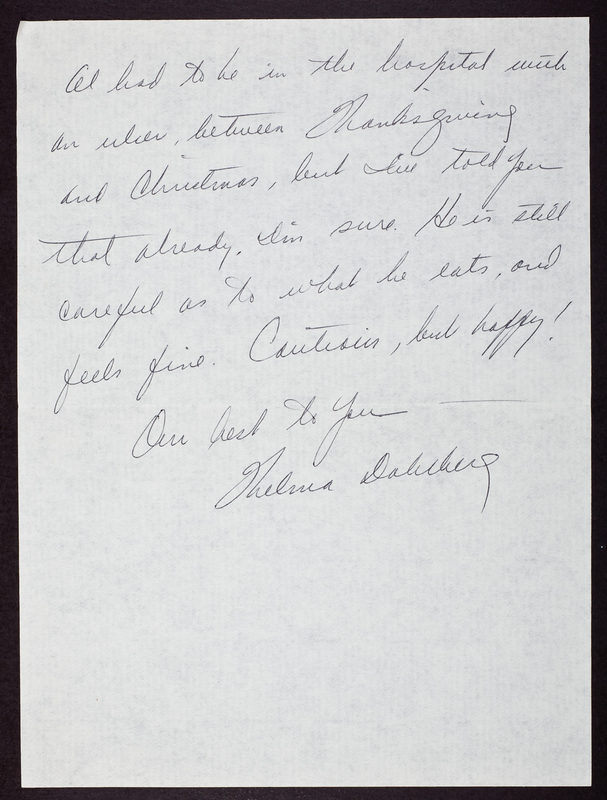 Al had to be in the hospital with
an ulcer, between Thanksgiving
and Christmas, but I've told you
that already, I'm sure. He is still
careful as to what he eats, and
feels fine. Cautious, but happy!
Our best to you —
Thelma Dahlberg